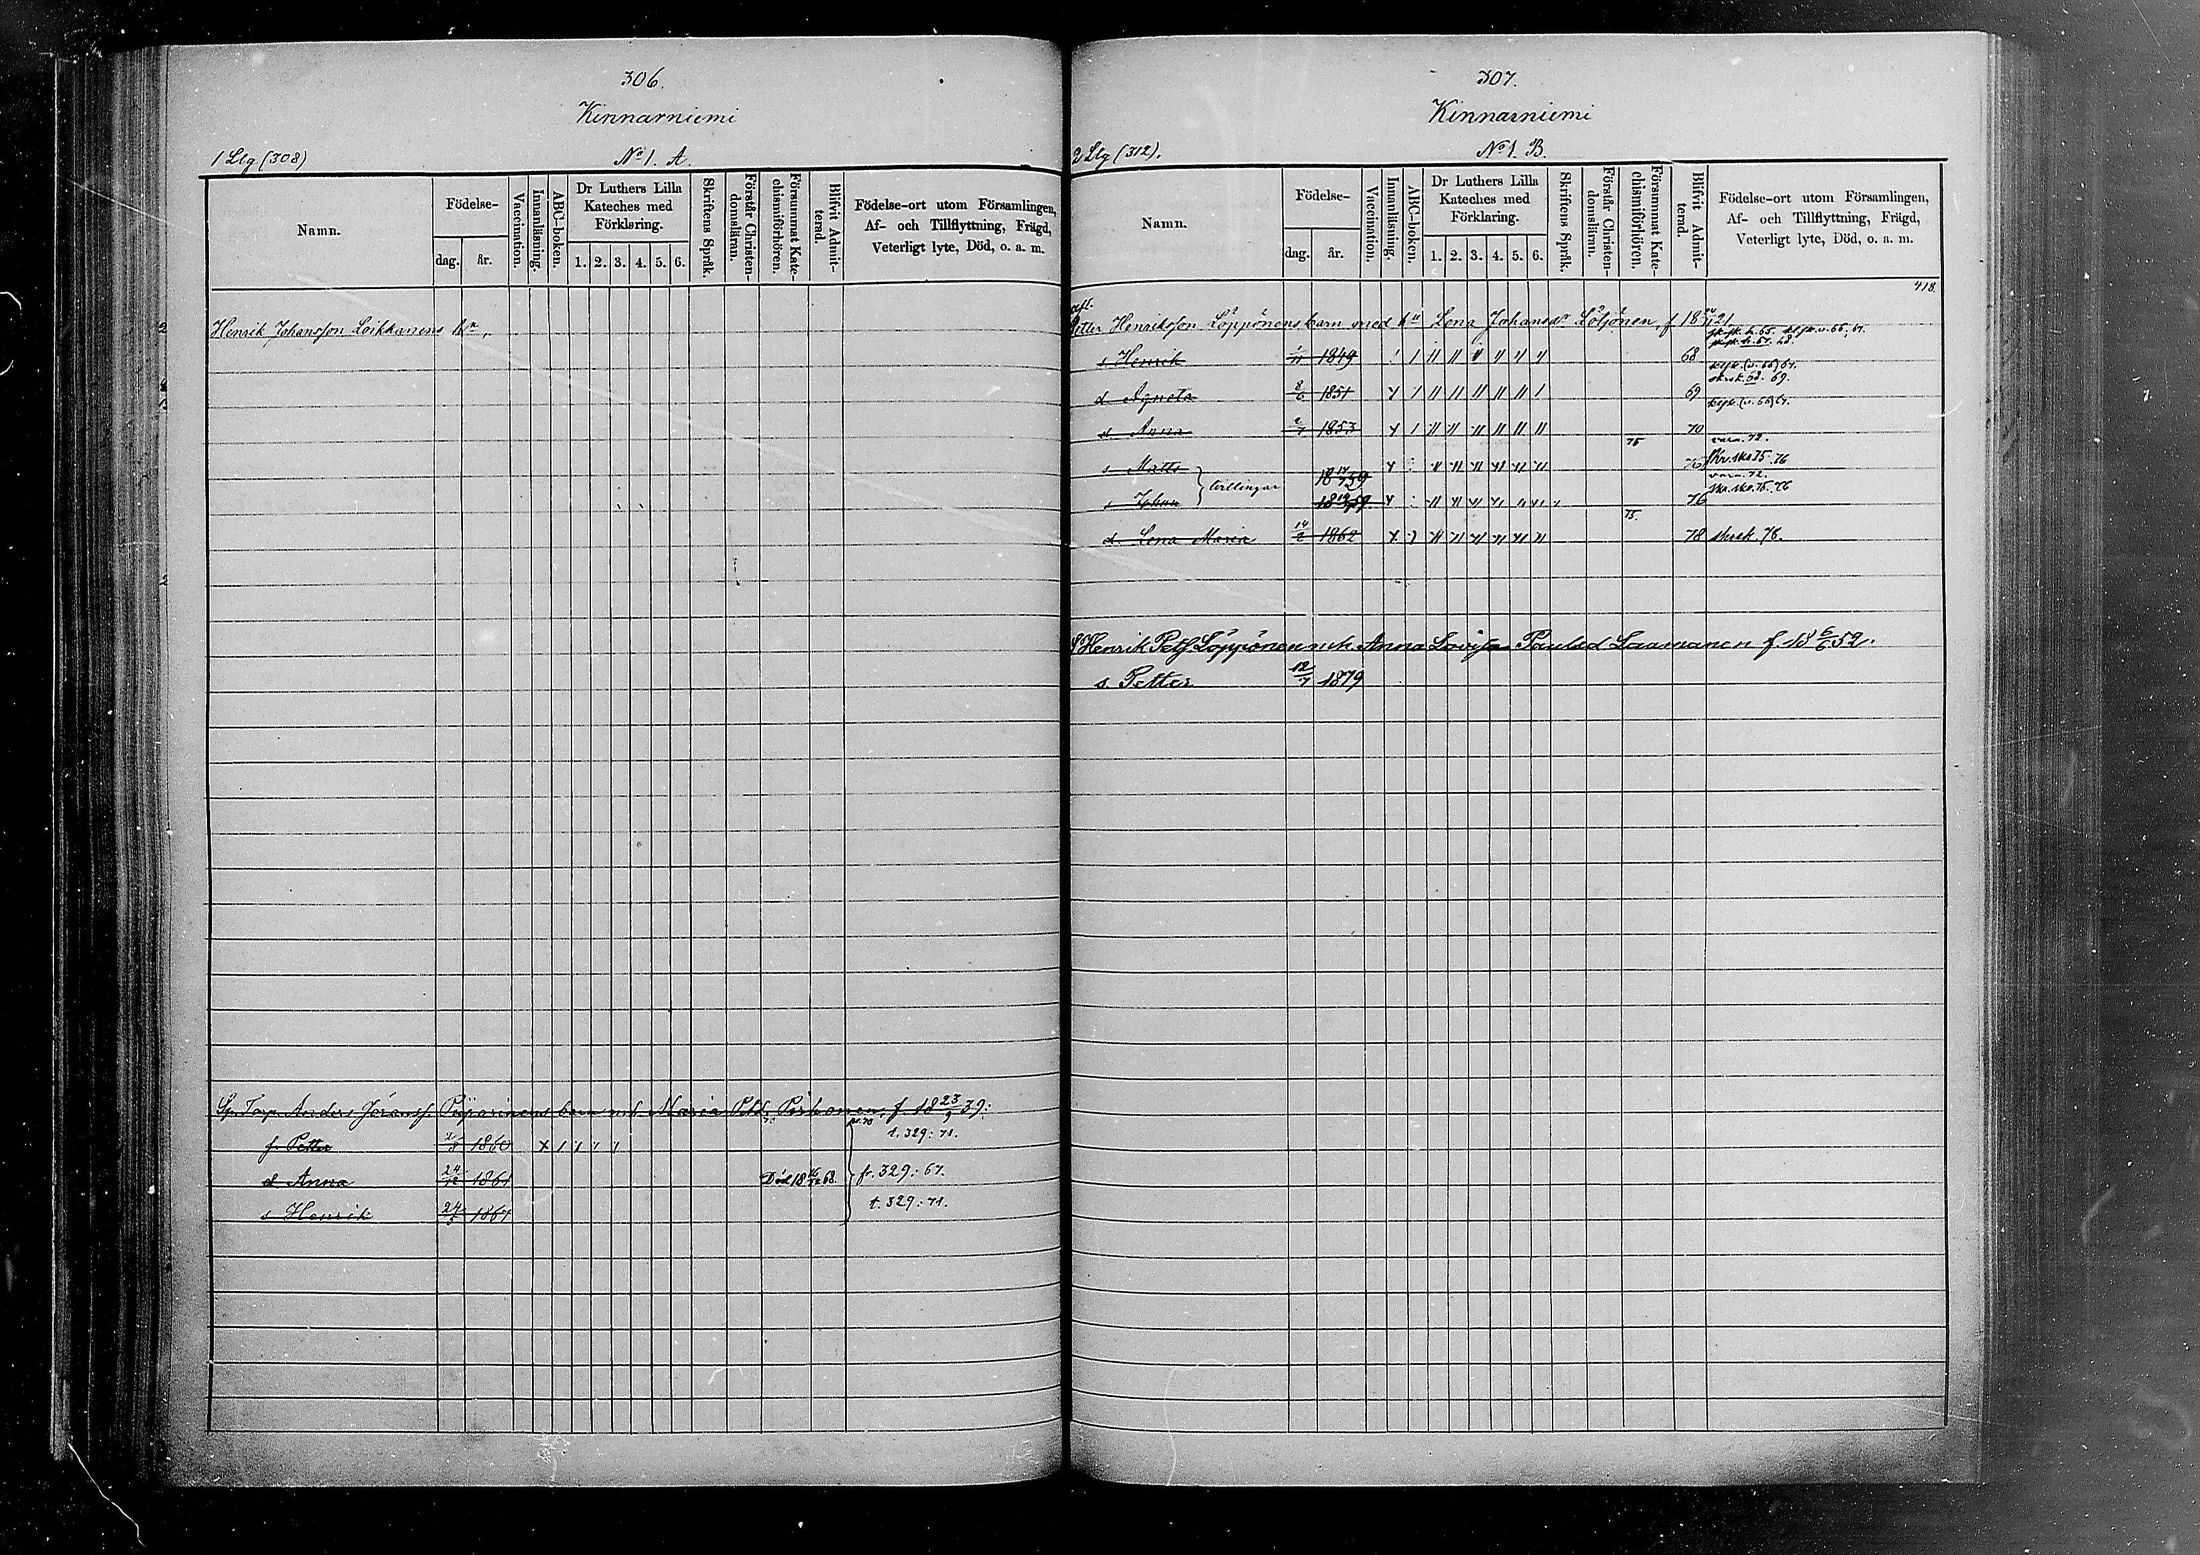 306.
Kinnarniemi
1 Llg (308)
No 1. A.
Namn.
Födelse-
dag. år.
Vaccination.
Innanläsning.
ABC-boken.
Dr Luthers Lilla
Kateches med
Förklaring.
1. 2. 3. 4. 5. 6.
Skriftens Språk.
Förstår Christen-
domsläran.
Försummat Kate-
chismiförhören.
Blifvit Admit-
terad.
Födelse-ort utom Församlingen,
Af- och Tillflyttning, Frägd,
Veterligt lyte, Död, o. a. m.
Henrik Johansson Loikkanens
Anders Göranss. Piiparinens barn m. Maria Petd. Pirhonen, f. 18 23/9 39:
t. 329: 71.
s. Petter 1860 x 1 1 1 1
d. Anna 24/12 1861 Död 18 68. fr. 329: 67.
s Henrik 24/5 1867 t. 329: 71.
307.
Kinnarniemi
2 Llg (312).
No 1. B.
Namn.
Födelse-
dag. år.
Vaccination.
Innanläsning.
ABC-boken.
Dr Luthers Lilla
Kateches med
Förklaring.
1. 2. 3. 4. 5. 6.
Skriftens Språk.
Förstår Christen-
domsläran.
Försummat Kate-
chismiförhören.
Blifvit Admit-
terad.
Födelse-ort utom Församlingen,
Af- och Tillflyttning, Frägd,
Veterligt lyte, Död, o. a. m.
418.
Petter Henriksson Löppönens barn med Lena Johansdr Löljönen, f. 18 21.
s Henrik 1849 68
d Agneta 8/6 1851 69
d Anna 1853 70
75 vacc. 72.
s Matts 18 59 76
tvillingar
s Johan 18 59. 76
75.
d. Lena Maria 14/2 1862 78 skrsk. 78.
Henrik Petss. Löppönen m. h. Anna Lovisa Paulsd Laamanen f. 18 6/6 52.
s. Petter 12/7 1879